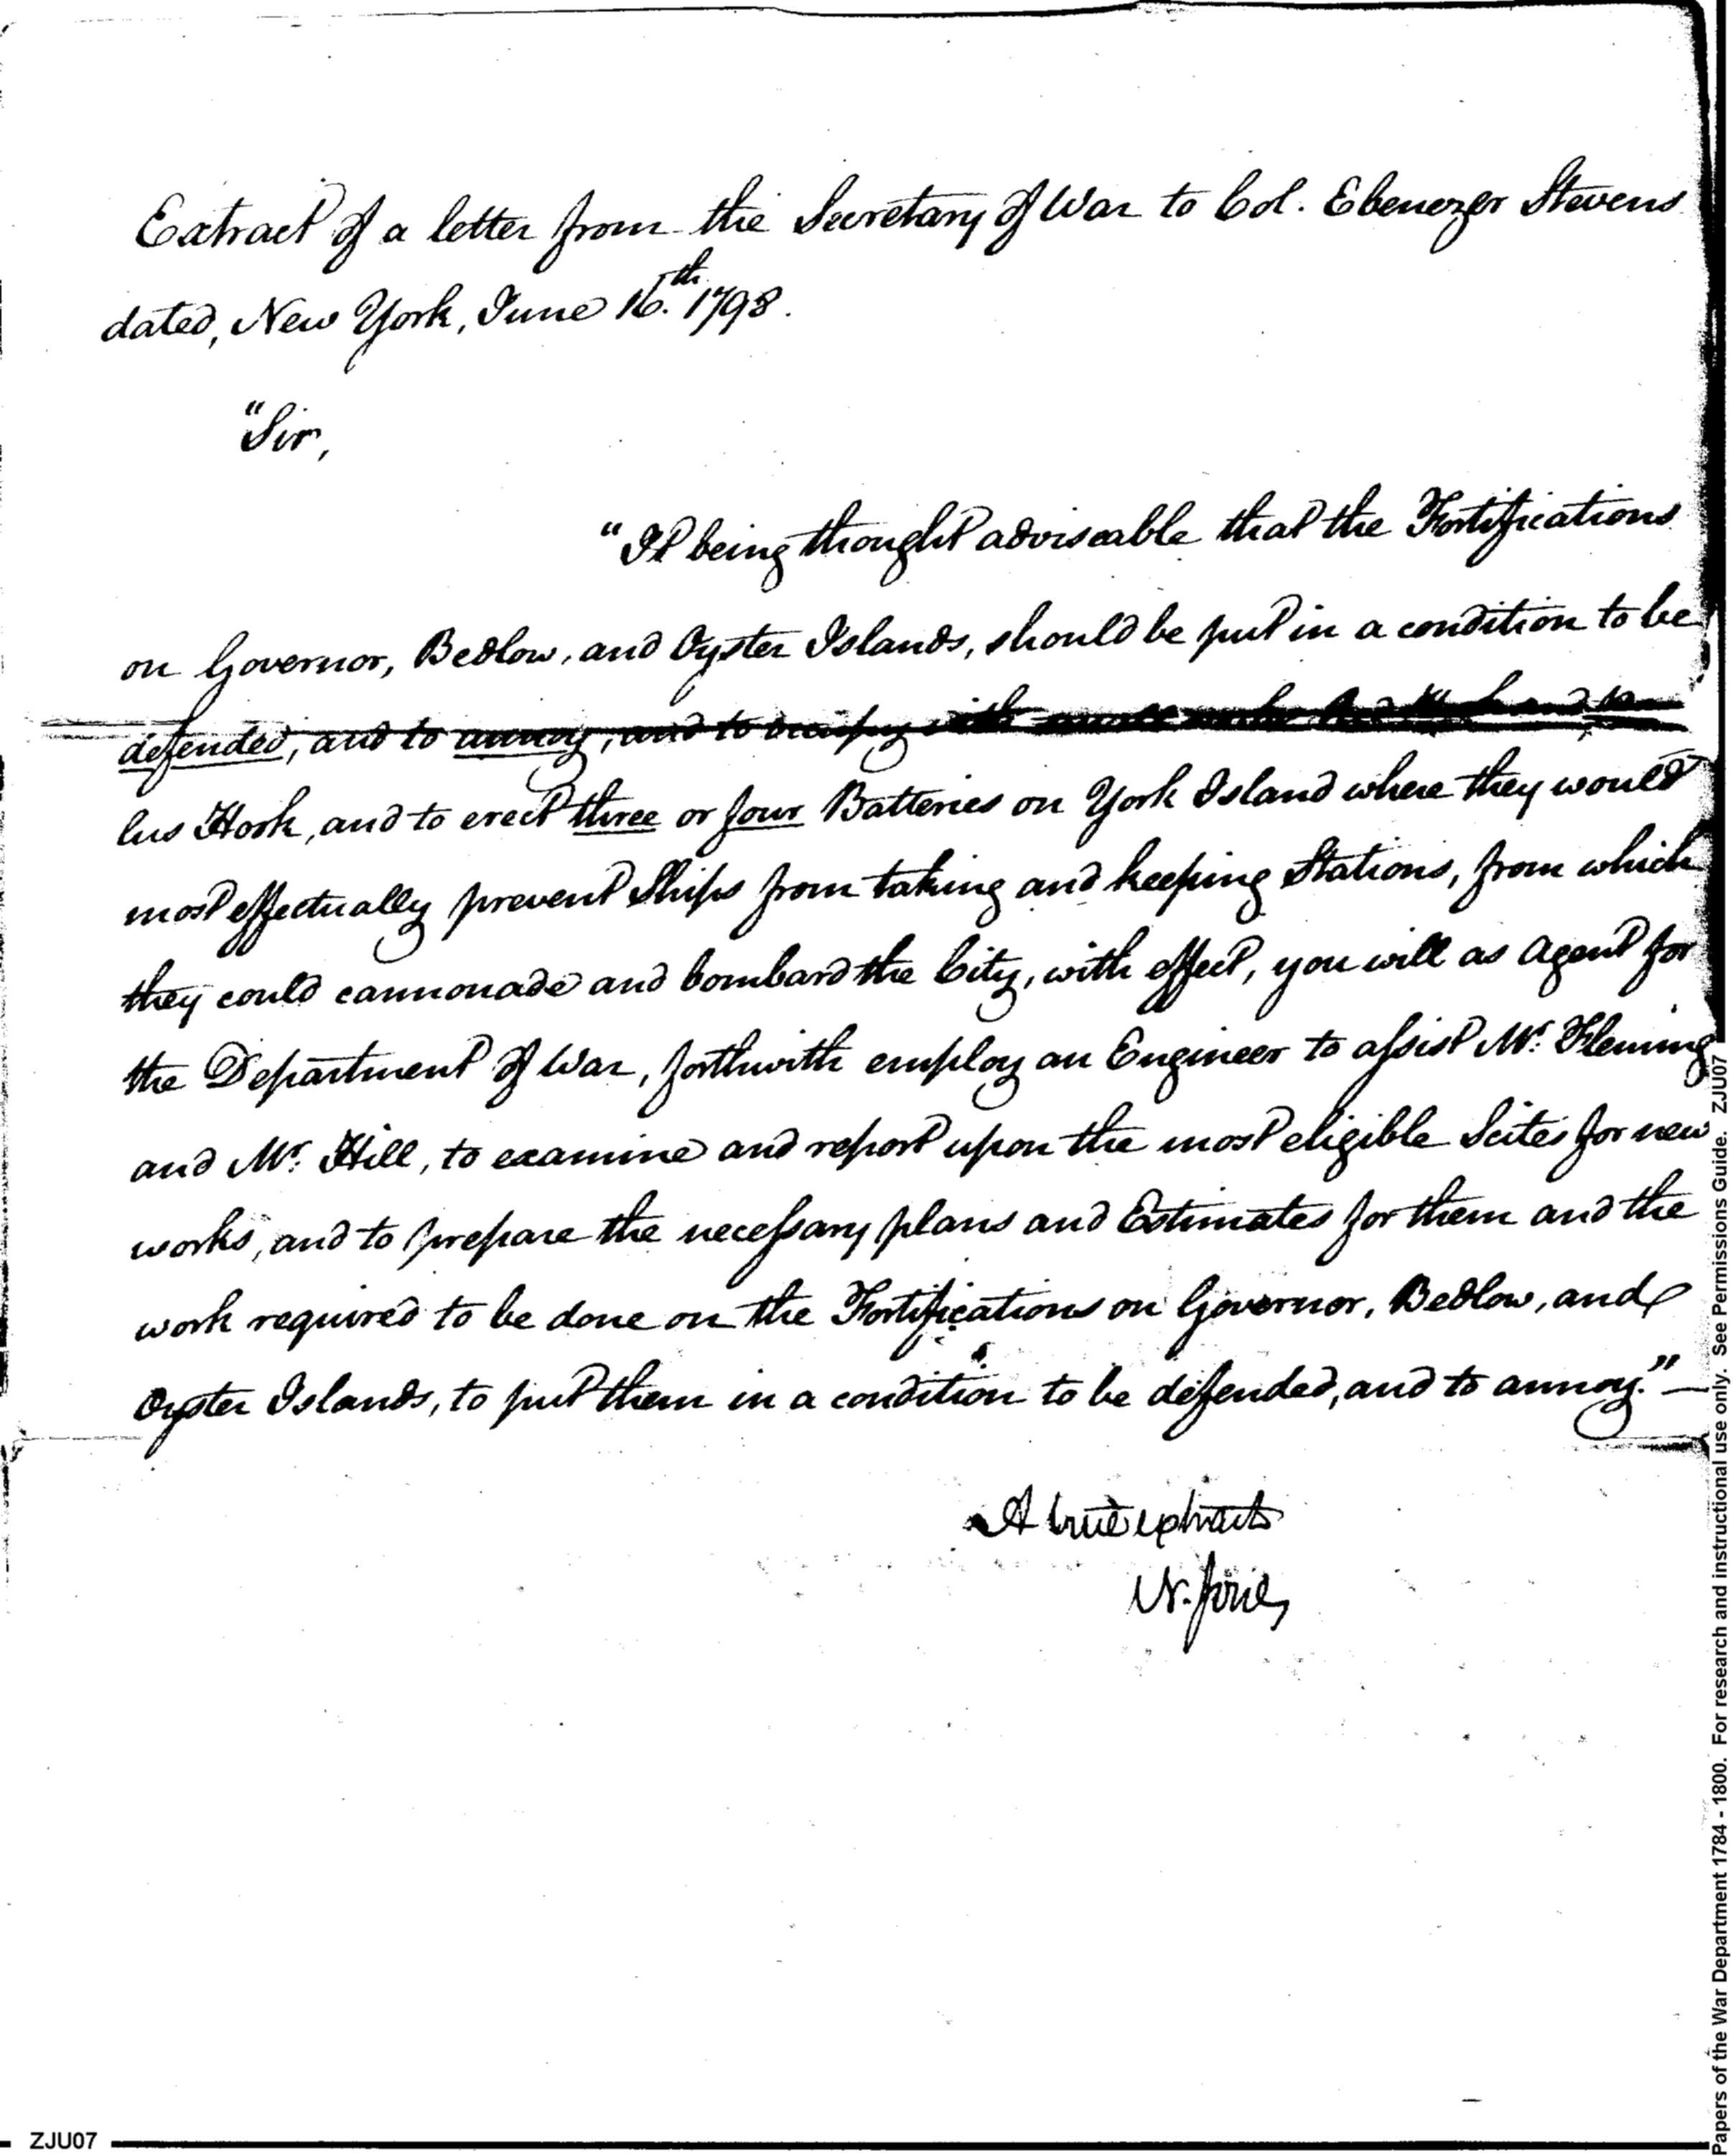 Extract of a letter from the Secretary of War to Col. Ebenezer Stevens
dated, New York, June 16.th 1798.
"Sir,
"It being thought adviseable that the Fortifications
on Governor, Bedlow, and Oyster Islands, should be put in a condition to be
defended, and to annoy, and to occupy with
lus Hook, and to erect three or four Batteries on York Island where they would
most effectually prevent Ships from taking and keeping Stations, from which
they could cannonade and bombard the City, with effect, you will as Agent for
the Department of War, forthwith employ an Engineer to assist Mr. Fleming
and Mr. Hill, to examine and report upon the most eligible Scites for new
works, and to prepare the necessary plans and Estimates for them and the
work required to be done on the Fortifications on Governor, Bedlow, and
Oyster Islands, to put them in a condition to be defended, and to annoy."
A true extract
N.
ZJU07
Papers of the War Department 1784 - 1800. For research and instructional use only. See Permissions Guide. ZJU07